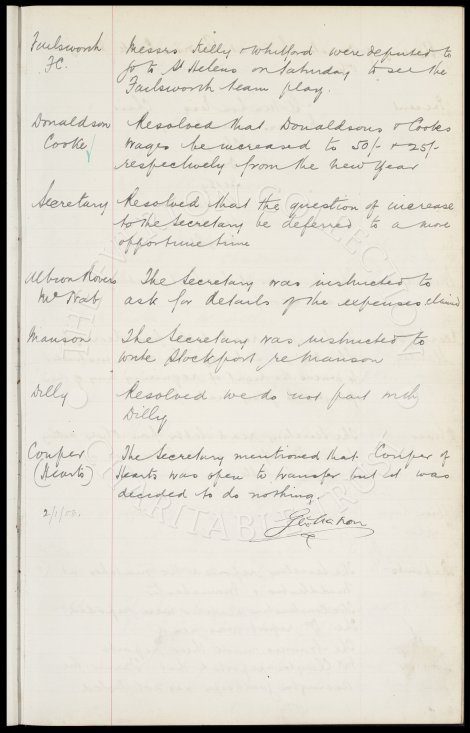 Failsworth Messrs Kelly & Whitford were deputed to
FC. go to St Helens on Saturday to see the
Failsworth team play.
Donaldson Resolved that Donaldsons & Cooks
Cooke wages be increased to 50/- & 25/-
respectively from the New Year
Secretary Resolved that the question of increase
to the Secretary be deferred to a more
opportune time
Albion Rovers The Secretary was instructed to
ask for details of the expenses claimed
Manson The Secretary was instructed to
write Stockport re Manson
Dilly Resolved we do not part with
Dilly
Couper The Secretary mentioned that Couper of
(Hearts) Hearts was open to transfer but it was
decided to do nothing.
2/1/08.
Geo Mahon